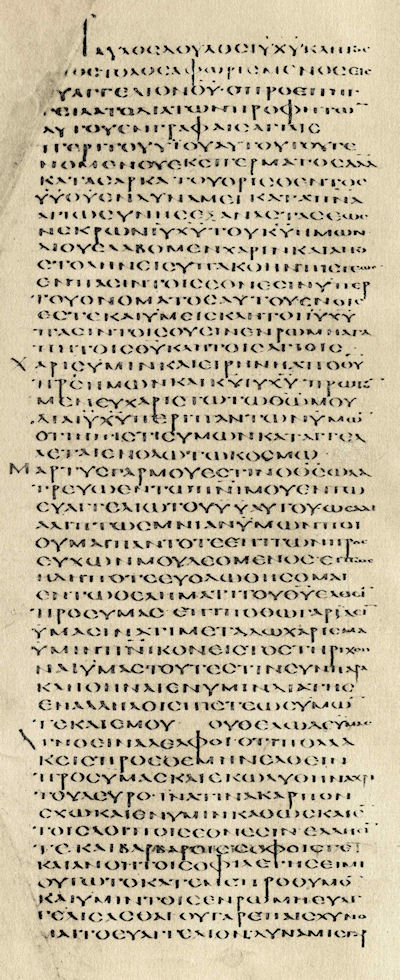 ΠΑΥΛΟϹ ΔΟΥΛΟϹ ΙΥ ΧΥ ΚΛΗΤΟϹ
ΠΟϹΤΟΛΟϹ ΑΦΩΡΙϹΜΕΝΟϹ ΕΙϹ
ΕΥΑΓΓΕΛΙΟΝ ΘΥ· Ο ΠΡΟΕΠΗΓ
ΓΕΙΛΑΤΟ ΔΙΑ ΤΩΝ ΠΡΟΦΗΤΩ̅
ΑΥΤΟΥ ΕΝ ΓΡΑΦΑΙϹ ΑΓΙΑΙϹ
ΠΕΡΙ ΤΟΥ ΥΥ ΑΥΤΟΥ ΤΟΥ ΓΕ
ΝΟΜΕΝΟΥ ΕΚ ϹΠΕΡΜΑΤΟϹ ΔΑΔ
ΚΑΤΑ ϹΑΡΚΑ ΤΟΥ ΟΡΙϹΘΕΝΤΟϹ
ΥΥ ΘΥ ΕΝ ΔΥΝΑΜΕΙ ΚΑΤΑ ΠΝΑ
ΑΓΙΩϹΥΝΗϹ ΕΞ ΑΝΑϹΤΑϹΕΩϹ
ΝΕΚΡΩΝ ΙΥ ΧΥ ΤΟΥ ΚΥ ΗΜΩΝ
ΔΙ ΟΥ ΕΛΑΒΟΜΕΝ ΧΑΡΙΝ ΚΑΙ ΑΠΟ
ϹΤΟΛΗΝ ΕΙϹ ΥΠΑΚΟΗΝ ΠΙϹΤΕΩϹ
ΕΝ ΠΑϹΙΝ ΤΟΙϹ ΕΘΝΕϹΙΝ ΥΠΕΡ
ΤΟΥ ΟΝΟΜΑΤΟϹ ΑΥΤΟΥ ΕΝ ΟΙϹ
ΕϹΤΕ ΚΑΙ ΥΜΕΙϹ ΚΛΗΤΟΙ ΙΥ ΧΥ
ΠΑϹΙΝ ΤΟΙϹ ΟΥϹΙΝ ΕΝ ΡΩΜΗ ΑΓΑ
ΠΗΤΟΙϹ ΘΥ ΚΛΗΤΟΙϹ ΑΓΙΟΙϹ
ΧΑΡΙϹ ΥΜΙΝ ΚΑΙ ΕΙΡΗΝΗ ΑΠΟ ΘΥ
ΠΡϹ ΗΜΩΝ ΚΑΙ ΚΥ ΙΥ ΧΥ ΠΡΩΤΟ̅
ΜΕΝ ΕΥΧΑΡΙϹΤΩ ΤΩ ΘΩ ΜΟΥ
ΔΙΑ ΙΥ ΧΥ ΠΕΡΙ ΠΑΝΤΩΝ ΥΜΩ̅
ΟΤΙ Η ΠΙϹΤΙϹ ΥΜΩΝ ΚΑΤΑΓΓΕΛ
ΛΕΤΑΙ ΕΝ ΟΛΩ ΤΩ ΚΟϹΜΩ
ΜΑΡΤΥϹ ΓΑΡ ΜΟΥ ΕϹΤΙΝ Ο ΘϹ Ω ΛΑ
ΤΡΕΥΩ ΕΝ ΤΩ ΠΝΙ ΜΟΥ ΕΝ ΤΩ
ΕΥΑΓΓΕΛΙΩ ΤΟΥ ΥΥ ΑΥΤΟΥ ΩϹ ΑΔΙ
ΑΛΙΠΤΩϹ ΜΝΙΑΝ ΥΜΩΝ ΠΟΙ
ΟΥΜΑΙ ΠΑΝΤΟΤΕ ΕΠΙ ΤΩΝ ΠΡΟϹ
ΕΥΧΩΝ ΜΟΥ ΔΕΟΜΕΝΟϹ ΕΙ ΠΩϹ
ΗΔΗ ΠΟΤΕ ΕΥΟΔΩΘΗϹΟΜΑΙ
ΕΝ ΤΩ ΘΕΛΗΜΑΤΙ ΤΟΥ ΘΥ ΕΛΘΕΙ̅
ΠΡΟϹ ΥΜΑϹ· ΕΠΙΠΟΘΩ ΓΑΡ ΙΔΕΙ̅
ΥΜΑϹ ΙΝΑ ΤΙ ΜΕΤΑΔΩ ΧΑΡΙϹΜΑ
ΥΜΙΝ ΠΝΙΚΟΝ ΕΙϹ ΤΟ ϹΤΗΡΙΧΘΗ
ΝΑΙ ΥΜΑϹ ΤΟΥΤΕϹΤΙΝ ϹΥΝΠΑΡΑ
ΚΛΗΘΗΝΑΙ ΕΝ ΥΜΙΝ ΔΙΑ ΤΗϹ
ΕΝ ΑΛΛΗΛΟΙϹ ΠΙϹΤΕΩϹ ΥΜΩ̅
ΤΕ ΚΑΙ ΕΜΟΥ ΟΥ ΘΕΛΩ ΔΕ ΥΜΑϹ
ΑΓΝΟΕΙΝ ΑΔΕΛΦΟΙ· ΟΤΙ ΠΟΛΛΑ
ΚΕΙϹ ΠΡΟΕΘΕΜΗΝ ΕΛΘΕΙΝ
ΠΡΟϹ ΥΜΑϹ ΚΑΙ ΕΚΩΛΥΘΗΝ ΑΧΡΙ
ΤΟΥ ΔΕΥΡΟ· ΙΝΑ ΤΙΝΑ ΚΑΡΠΟΝ
ϹΧΩ ΚΑΙ ΕΝ ΥΜΙΝ ΚΑΘΩϹ ΚΑΙ Ε̅
ΤΟΙϹ ΛΟΙΠΟΙϹ ΕΘΝΕϹΙΝ· ΕΛΛΗϹΙ̅
ΤΕ ΚΑΙ ΒΑΡΒΑΡΟΙϹ ϹΟΦΟΙϹ ΤΕ
ΚΑΙ ΑΝΟΗΤΟΙϹ ΟΦΙΛΕΤΗϹ ΕΙΜΙ
ΟΥΤΩ ΤΟ ΚΑΤ ΕΜΕ ΠΡΟΘΥΜΟ̅
ΚΑΙ ΥΜΙΝ ΤΟΙϹ ΕΝ ΡΩΜΗ ΕΥΑΓ
ΓΕΛΙϹΑϹΘΑΙ ΟΥ ΓΑΡ ΕΠΑΙϹΧΥΝΟ
ΜΑΙ ΤΟ ΕΥΑΓΓΕΛΙΟΝ· ΔΥΝΑΜΙϹ ΓΑΡ